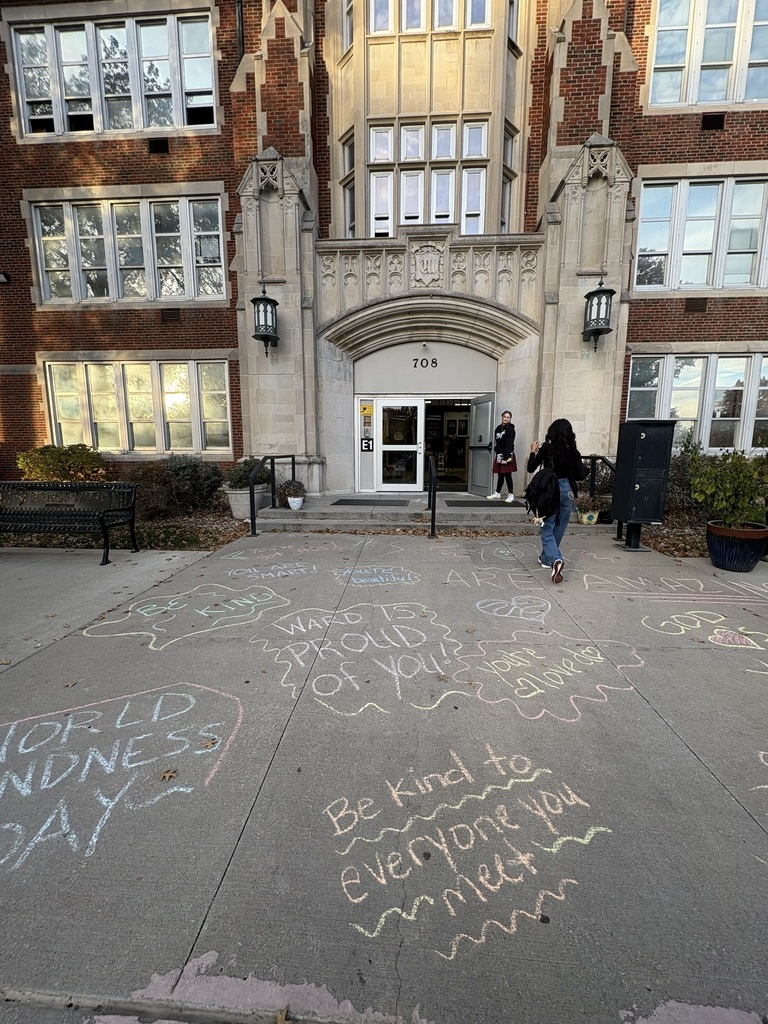 708
E1
YOU ARE
SMART!
You're
beautiful
ARE AMAZIN
BE KIND
WARD IS
PROUD
OF YOU!
you're
loved
GOD
WORLD
INDNESS
DAY
Be kind to
everyone you
meet